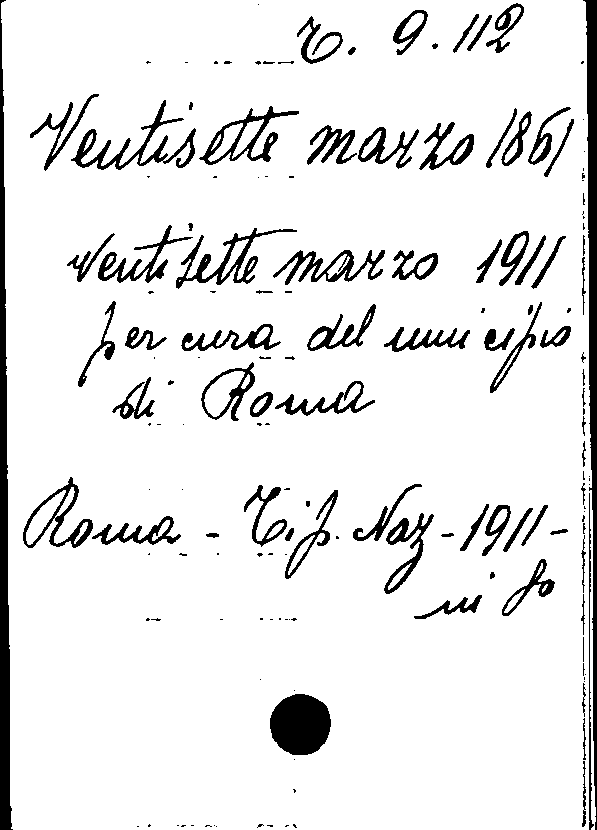 T. 9. 112
Ventisette marzo 1861
Ventisette marzo 1911
per cura del municipio
di Roma
Roma - Tip. Naz - 1911 -
in fo